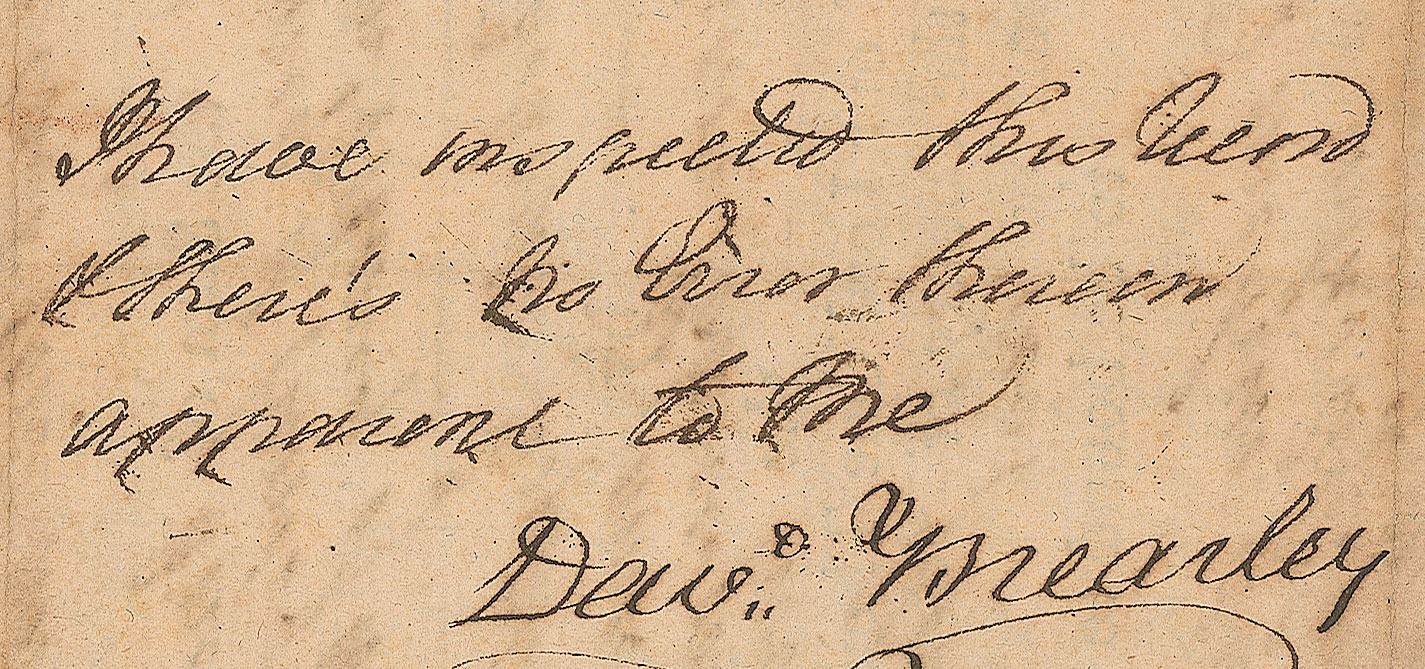 I have inspected this Record
& there's no Error therein
apparent to me
Davd. Brearley